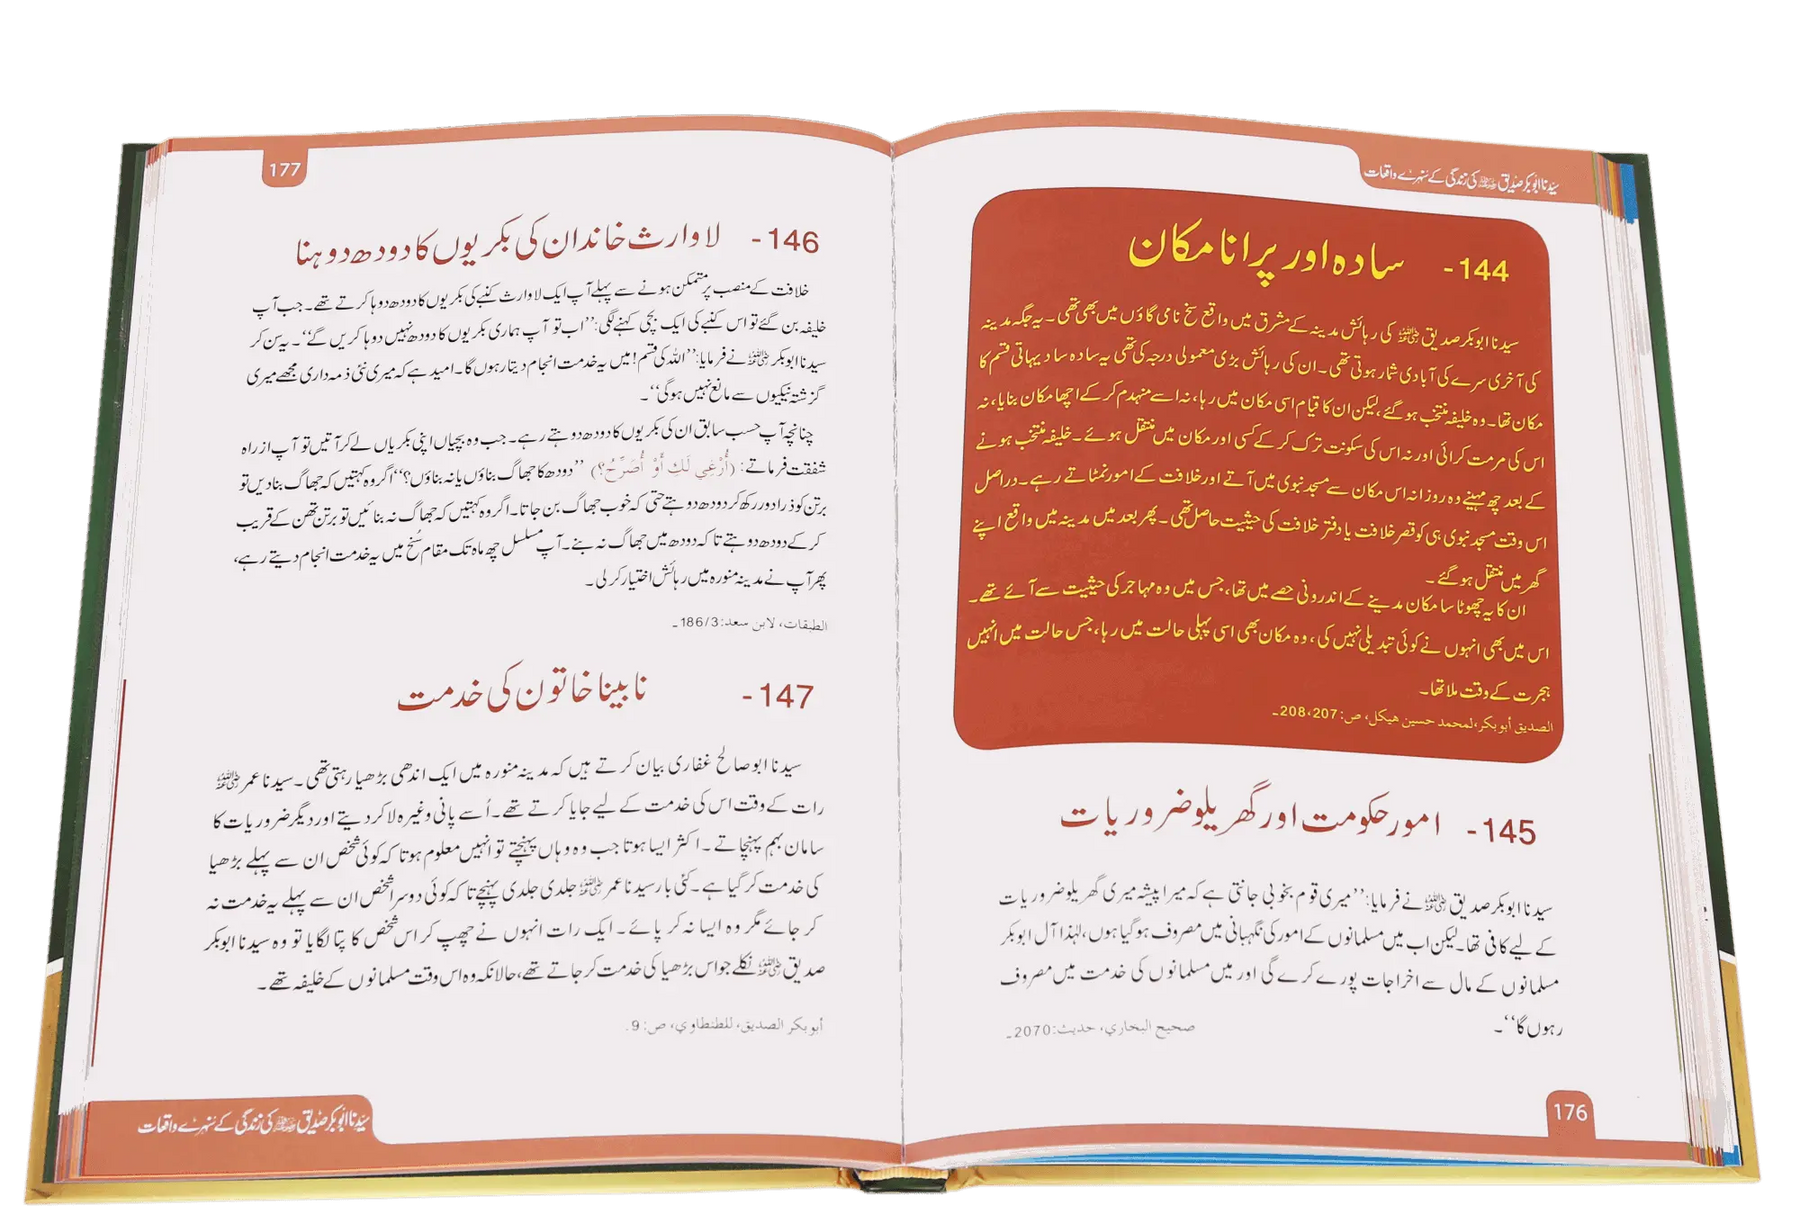 سیدنا ابوبکر صدیق رضی اللہ عنہ کی زندگی کے سنہرے واقعات
144- سادہ اور پرانا مکان
سیدنا ابوبکر صدیق رضی اللہ عنہ کی رہائش مدینہ کے مشرق میں واقع سخ نامی گاؤں میں بھی تھی۔ یہ جگہ مدینہ
کی آخری سرے کی آبادی شمار ہوتی تھی۔ ان کی رہائش بڑی معمولی درجہ کی تھی یہ سادہ سا دیہاتی قسم کا
مکان تھا۔ وہ خلیفہ منتخب ہو گئے، لیکن ان کا قیام اسی مکان میں رہا، نہ اسے منہدم کر کے اچھا مکان بنایا، نہ
اس کی مرمت کرائی اور نہ اس کی سکونت ترک کر کے کسی اور مکان میں منتقل ہوئے۔ خلیفہ منتخب ہونے
کے بعد چھ مہینے وہ روزانہ اس مکان سے مسجد نبوی میں آتے اور خلافت کے امور نمٹاتے رہے۔ دراصل
اس وقت مسجد نبوی ہی کو قصر خلافت یا دفتر خلافت کی حیثیت حاصل تھی۔ پھر بعد میں مدینہ میں واقع اپنے
گھر میں منتقل ہو گئے۔
ان کا یہ چھوٹا سا مکان مدینے کے اندرونی حصے میں تھا، جس میں وہ مہاجر کی حیثیت سے آئے تھے۔
اس میں بھی انہوں نے کوئی تبدیلی نہیں کی، وہ مکان بھی اسی پہلی حالت میں رہا، جس حالت میں انہیں
ہجرت کے وقت ملا تھا۔
الصدیق أبو بکر، لمحمد حسین ھیکل، ص: 207، 208۔
145- امور حکومت اور گھریلو ضروریات
سیدنا ابوبکر صدیق رضی اللہ عنہ نے فرمایا: ’’میری قوم بخوبی جانتی ہے کہ میرا پیشہ میری گھریلو ضروریات
کے لیے کافی تھا۔ لیکن اب میں مسلمانوں کے امور کی نگہبانی میں مصروف ہو گیا ہوں، لہٰذا آل ابوبکر
مسلمانوں کے مال سے اخراجات پورے کرے گی اور میں مسلمانوں کی خدمت میں مصروف
رہوں گا‘‘۔
صحیح البخاري، حدیث: 2070۔
176
177
146- لاوارث خاندان کی بکریوں کا دودھ دوہنا
خلافت کے منصب پر متمکن ہونے سے پہلے آپ ایک لاوارث کنبے کی بکریوں کا دودھ دوہا کرتے تھے۔ جب آپ
خلیفہ بن گئے تو اس کنبے کی ایک بچی کہنے لگی: ’’اب تو آپ ہماری بکریوں کا دودھ نہیں دوہا کریں گے‘‘۔ یہ سن کر
سیدنا ابوبکر رضی اللہ عنہ نے فرمایا: ’’اللہ کی قسم! میں یہ خدمت انجام دیتا رہوں گا۔ امید ہے کہ میری نئی ذمہ داری مجھے میری
گزشتہ نیکیوں سے مانع نہیں ہوگی‘‘۔
چنانچہ آپ حسب سابق ان کی بکریوں کا دودھ دوہتے رہے۔ جب وہ بچیاں اپنی بکریاں لے کر آتیں تو آپ از راہ
شفقت فرماتے: (أُرْغِي لَكِ أَوْ أُصَرِّحُ؟) ’’دودھ کا جھاگ بناؤں یا نہ بناؤں؟‘‘ اگر وہ کہتیں کہ جھاگ بنا دیں تو
برتن کو ذرا دور رکھ کر دودھ دوہتے حتی کہ خوب جھاگ بن جاتا۔ اگر وہ کہتیں کہ جھاگ نہ بنائیں تو برتن تھن کے قریب
کر کے دودھ دوہتے تاکہ دودھ میں جھاگ نہ بنے۔ آپ مسلسل چھ ماہ تک مقام سُنح میں یہ خدمت انجام دیتے رہے،
پھر آپ نے مدینہ منورہ میں رہائش اختیار کر لی۔
الطبقات، لابن سعد: 186/3۔
147- نابینا خاتون کی خدمت
سیدنا ابو صالح غفاری بیان کرتے ہیں کہ مدینہ منورہ میں ایک اندھی بڑھیا رہتی تھی۔ سیدنا عمر رضی اللہ عنہ
رات کے وقت اس کی خدمت کے لیے جایا کرتے تھے۔ اُسے پانی وغیرہ لا کر دیتے اور دیگر ضروریات کا
سامان بہم پہنچاتے۔ اکثر ایسا ہوتا جب وہ وہاں پہنچتے تو انہیں معلوم ہوتا کہ کوئی شخص ان سے پہلے بڑھیا
کی خدمت کر گیا ہے۔ کئی بار سیدنا عمر رضی اللہ عنہ جلدی جلدی پہنچے تاکہ کوئی دوسرا شخص ان سے پہلے یہ خدمت نہ
کر جائے مگر وہ ایسا نہ کر پائے۔ ایک رات انہوں نے چھپ کر اس شخص کا پتا لگایا تو وہ سیدنا ابوبکر
صدیق رضی اللہ عنہ نکلے جو اس بڑھیا کی خدمت کر جاتے تھے، حالانکہ وہ اس وقت مسلمانوں کے خلیفہ تھے۔
أبو بکر الصدیق، للطنطاوي، ص: 9.
سیدنا ابوبکر صدیق رضی اللہ عنہ کی زندگی کے سنہرے واقعات